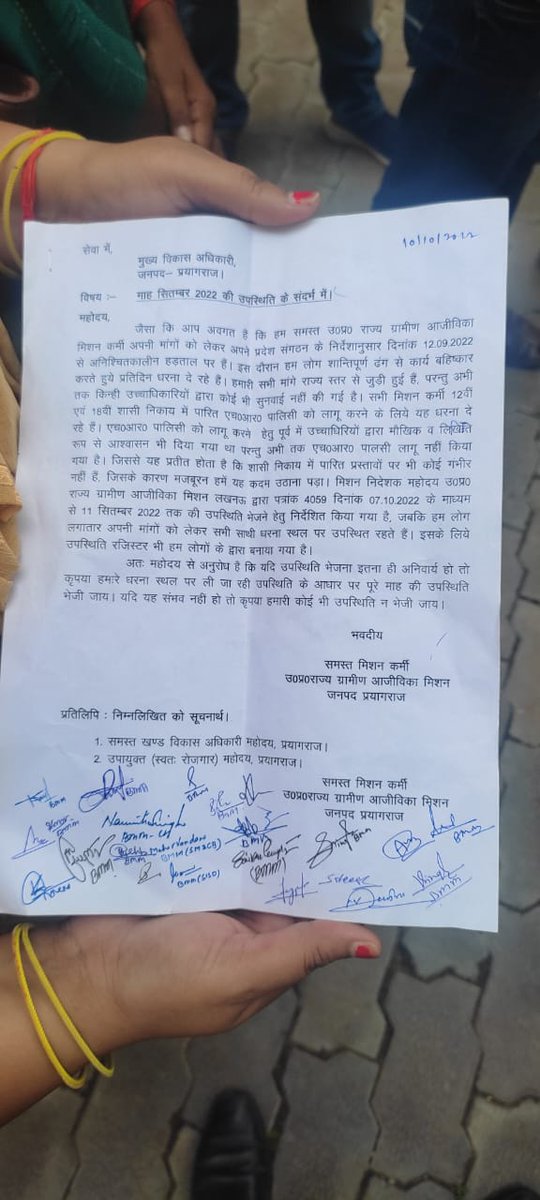 10/10/2022
सेवा में,
मुख्य विकास अधिकारी,
जनपद– प्रयागराज।
विषय :– माह सितम्बर 2022 की उपस्थिति के संदर्भ में।
महोदय,
जैसा कि आप अवगत है कि हम समस्त उ0प्र0 राज्य ग्रामीण आजीविका
मिशन कर्मी अपनी मांगों को लेकर अपने प्रदेश संगठन के निर्देशानुसार दिनांक 12.09.2022
से अनिश्चितकालीन हड़ताल पर हैं। इस दौरान हम लोग शान्तिपूर्ण ढंग से कार्य बहिष्कार
करते हुये प्रतिदिन धरना दे रहे हैं। हमारी सभी मांग राज्य स्तर से जुड़ी हुई हैं, परन्तु अभी
तक किन्ही उच्चाधिकारियों द्वारा कोई भी सुनवाई नहीं की गई है। सभी मिशन कर्मी 12वीं
एवं 18वी शासी निकाय में पारित एच0आर0 पालिसी को लागू करने के लिये यह धरना दे
रहे हैं। एच0आर0 पालिसी को लागू करने हेतु पूर्व में उच्चाधिरियों द्वारा मौखिक व लिखित
रूप से आश्वासन भी दिया गया था परन्तु अभी तक एच0आर0 पालसी लागू नहीं किया
गया है। जिससे यह प्रतीत होता है कि शासी निकाय में पारित प्रस्तावों पर भी कोई गंभीर
नहीं हैं, जिसके कारण मजबूरन हमें यह कदम उठाना पड़ा। मिशन निदेशक महोदय उ0प्र0
राज्य ग्रामीण आजीविका मिशन लखनऊ द्वारा पत्रांक 4059 दिनांक 07.10.2022 के माध्यम
से 11 सितम्बर 2022 तक की उपस्थिति भेजने हेतु निर्देशित किया गया है, जबकि हम लोग
लगातार अपनी मांगों को लेकर सभी साथी धरना स्थल पर उपस्थित रहते हैं। इसके लिये
उपस्थिति रजिस्टर भी हम लोगों के द्वारा बनाया गया है।
अतः महोदय से अनुरोध है कि यदि उपस्थिति भेजना इतना ही अनिवार्य हो तो
कृपया हमारे धरना स्थल पर ली जा रही उपस्थिति के आधार पर पूरे माह की उपस्थिति
भेजी जाय। यदि यह संभव नही हो तो कृपया हमारी कोई भी उपस्थिति न भेजी जाय।
भवदीय
समस्त मिशन कर्मी
उ0प्र0राज्य ग्रामीण आजीविका मिशन
जनपद प्रयागराज
प्रतिलिपि : निम्नलिखित को सूचनार्थ।
1. समस्त खण्ड विकास अधिकारी महोदय, प्रयागराज।
2. उपायुक्त (स्वतः रोजगार) महोदय, प्रयागराज।
समस्त मिशन कर्मी
उ0प्र0राज्य ग्रामीण आजीविका मिशन
जनपद प्रयागराज
BMM
BMM
BMM
BMM
BMM
BMM
BMM
BMM
BMM
BMM
(BMM)
BMM